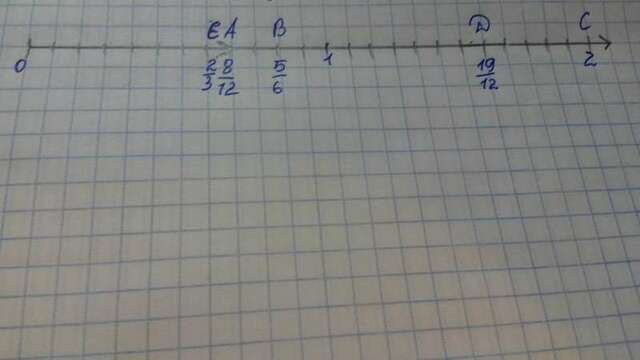 E A B D C
0 2/3 8/12 5/6 1 19/12 2